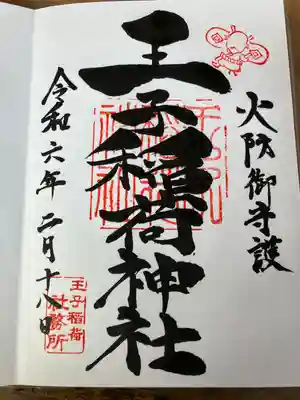 火防御守護
王子稲荷神社
令和六年二月十八日
王子稲荷
社務所